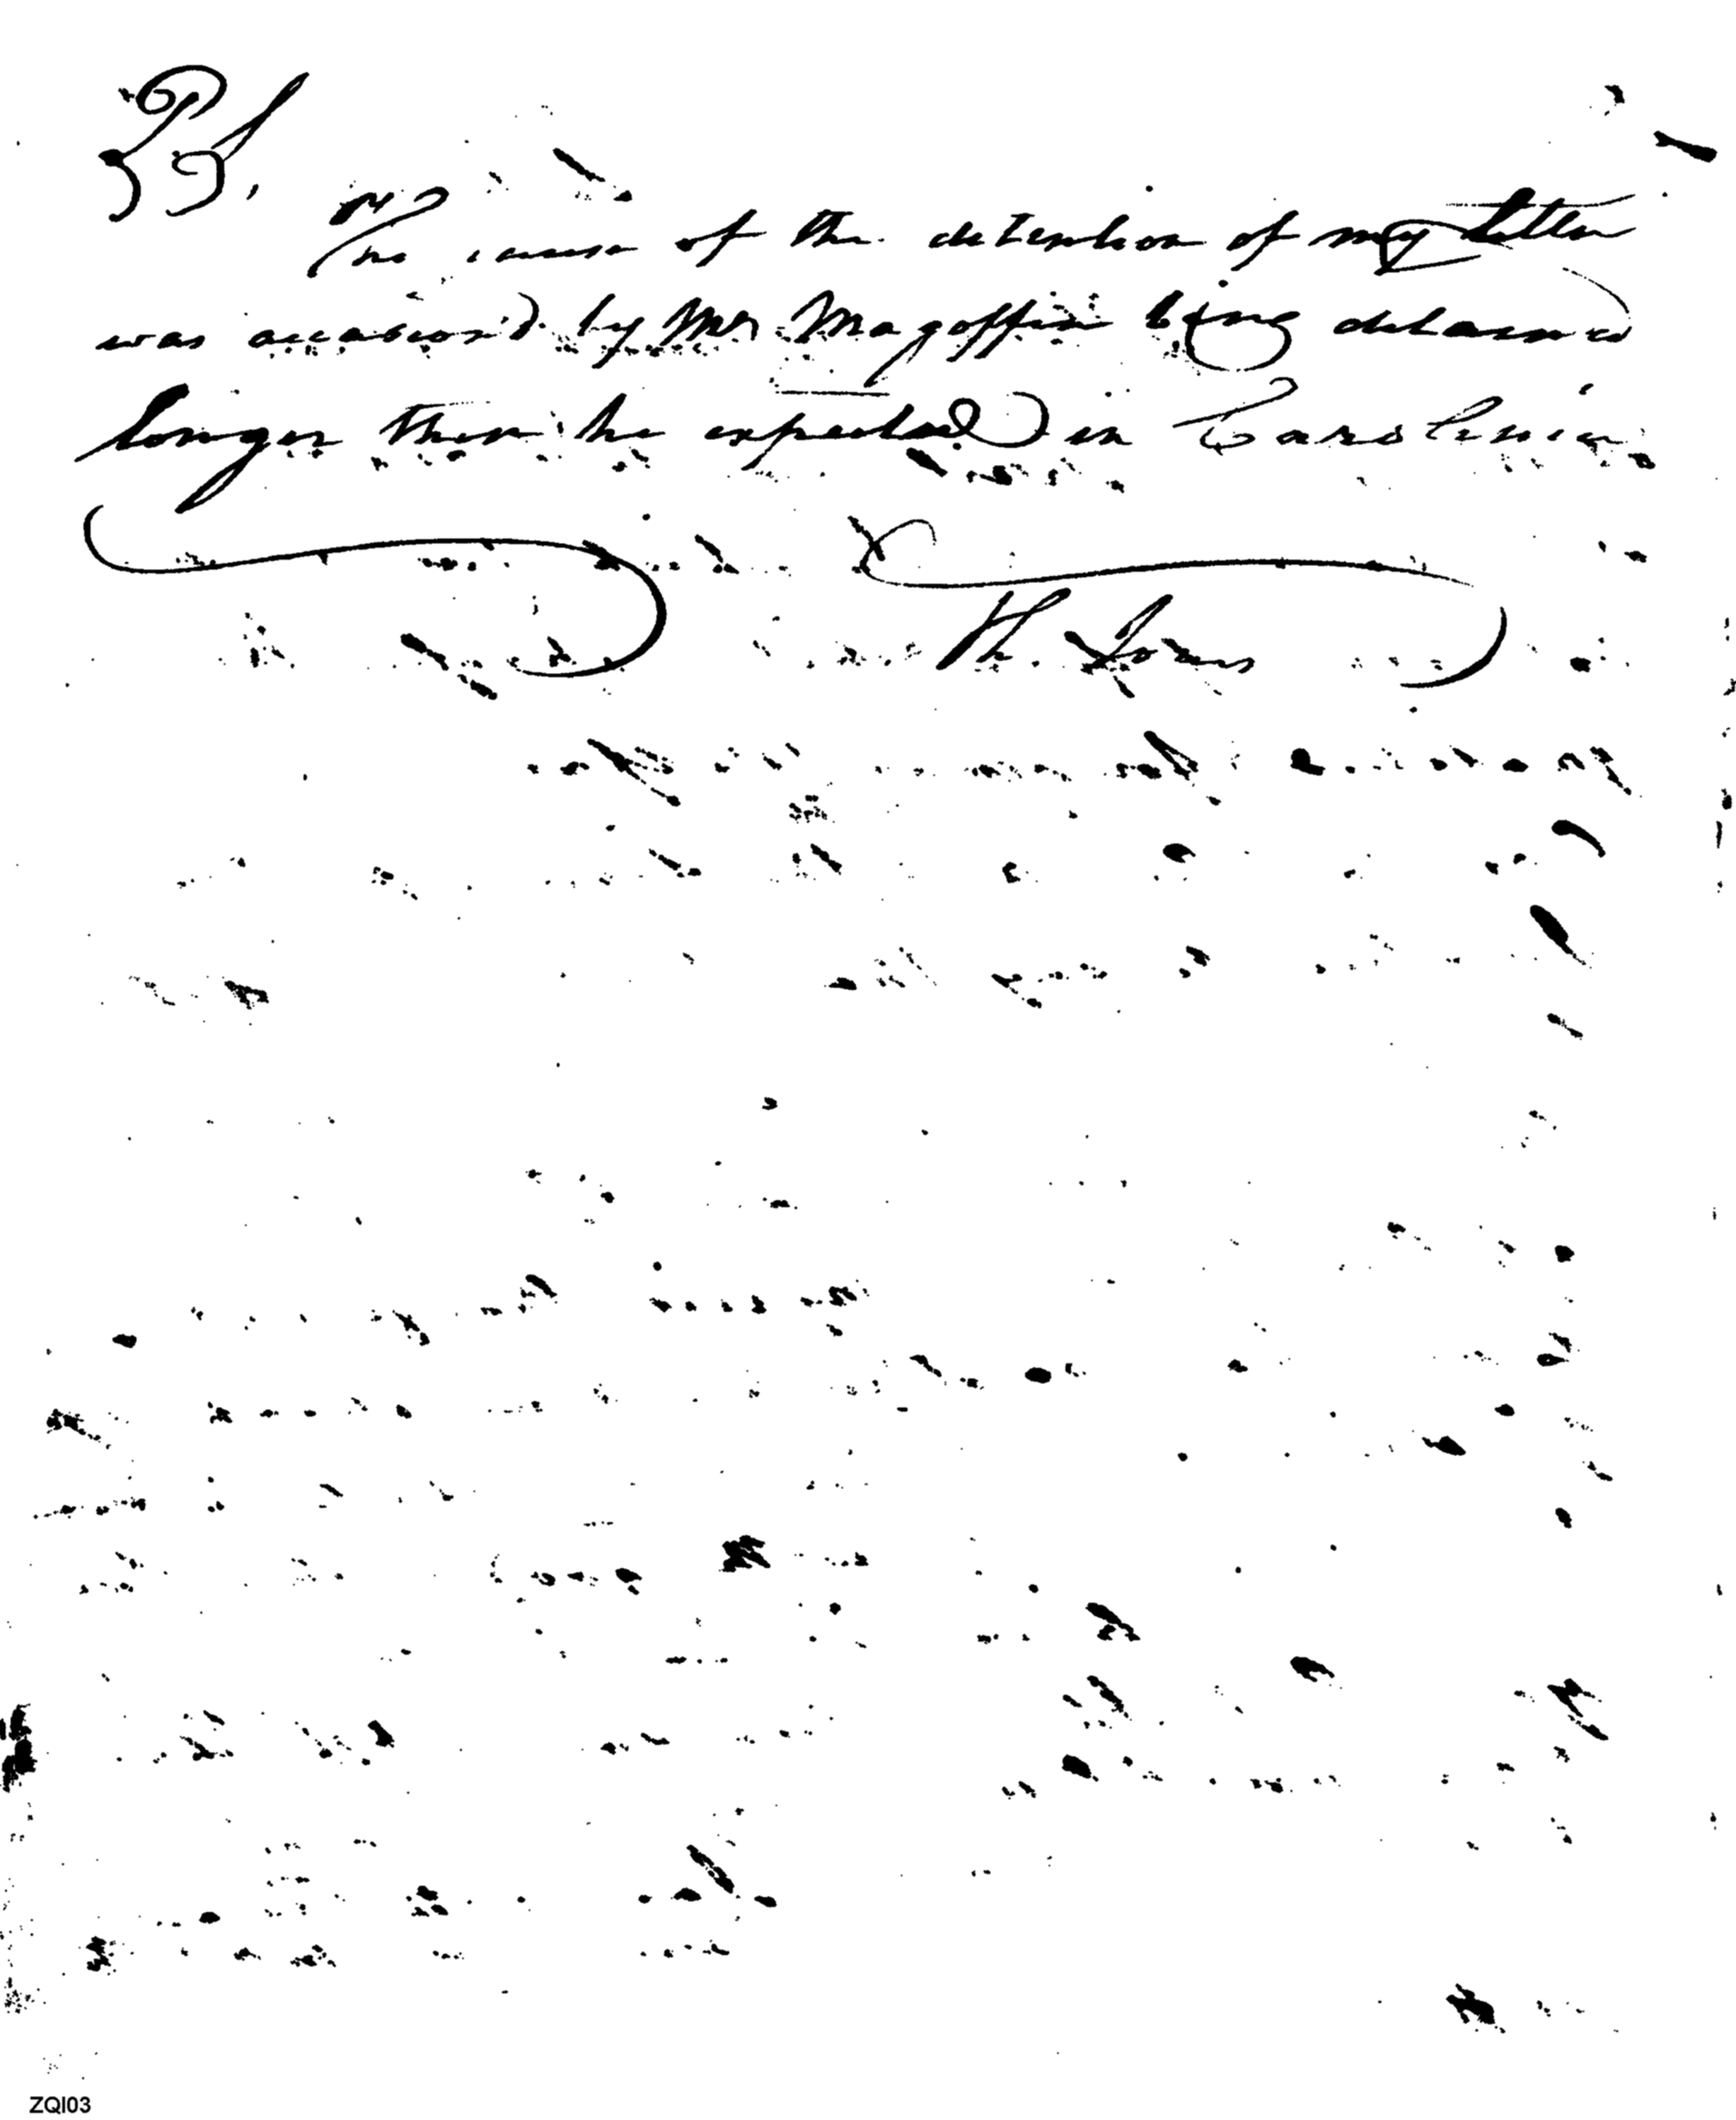 PS.
The cause of the detention of my letter
was occasiond by Mr Magoffin being detained
longer then he expected in Carolinia
Th. Lorus
ZQI03